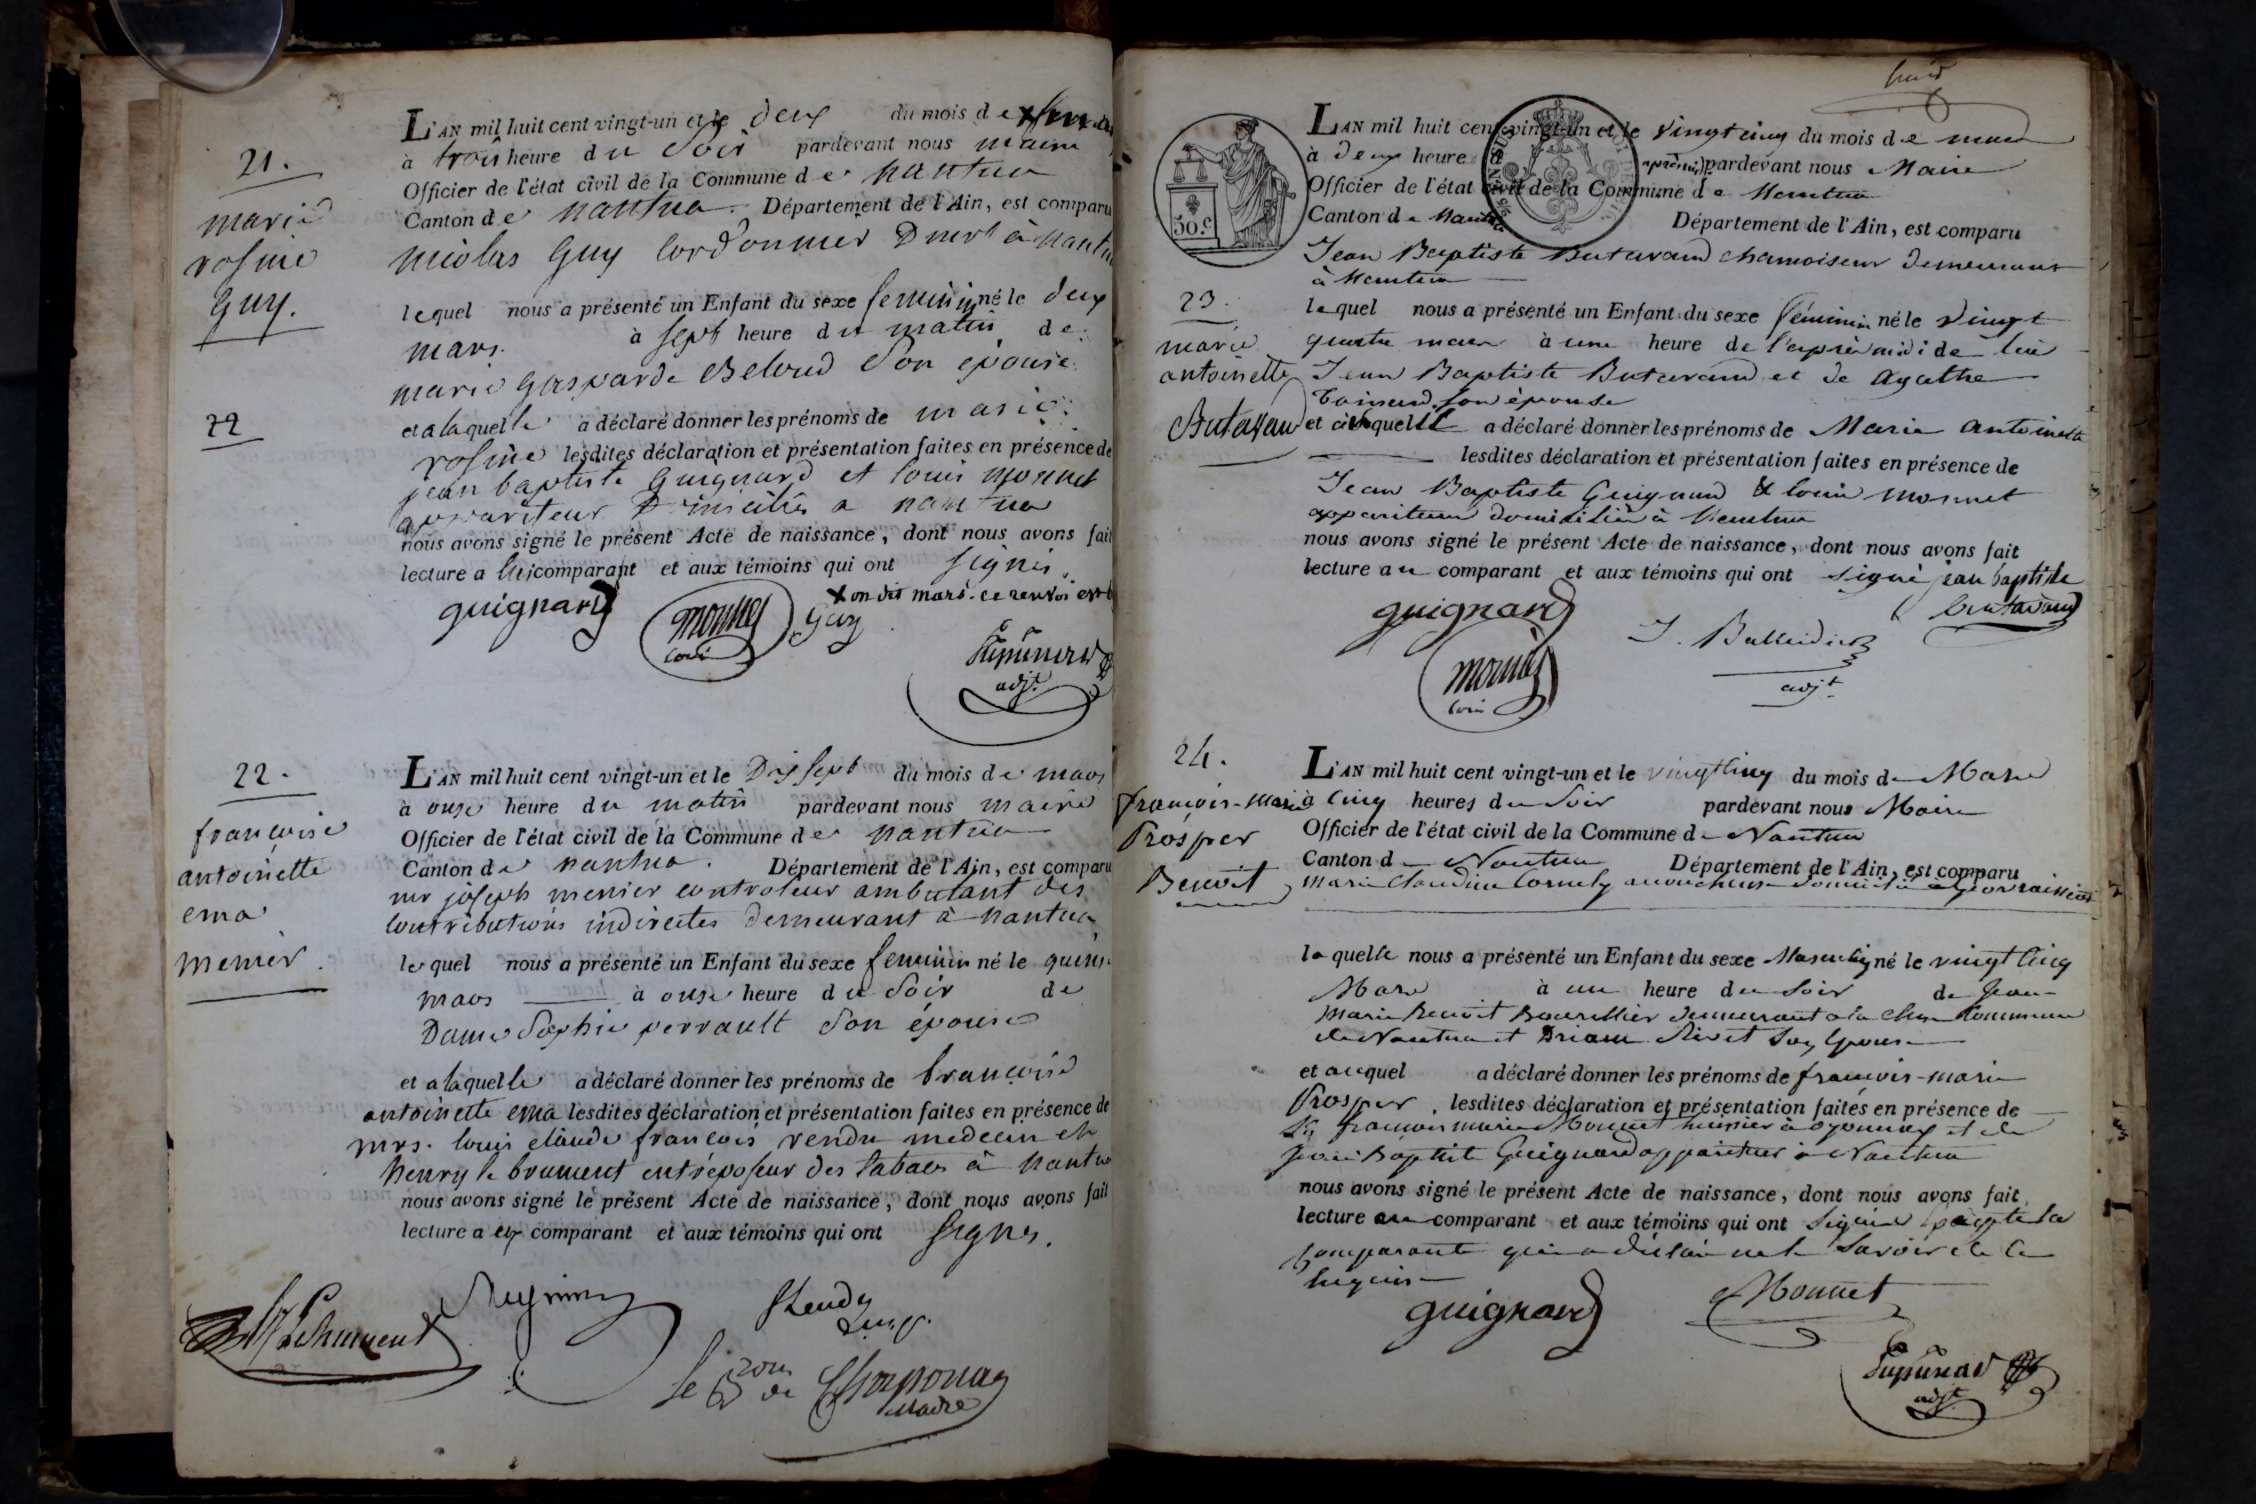 21.
marie
rosine
Guy.
L'AN mil huit cent vingt-un et le deux du mois de
à trois heure du soir pardevant nous maire
Officier de l'état civil de la Commune de nantua
Canton de nantua. Département de l'Ain, est comparu
nicolas Guy cordonnier à nantua
lequel nous a présenté un Enfant du sexe feminin né le deux
mars. à sept heure du matin de
marie gasparde Beloud son épouse.
22
et a laquelle a déclaré donner les prénoms de marie
rosine lesdites déclaration et présentation faites en présence de
jean baptiste Guignard et louis monnet
appariteur Domiciliés a nantua
nous avons signé le présent Acte de naissance, dont nous avons fait
lecture a comparant et aux témoins qui ont signés.
x on dit mars. ce renvoi
guignard monnet Guy
louis
adjt.
22.
françoise
antoinette
ema
menier.
L'AN mil huit cent vingt-un et le Dix sept du mois de mars
à onse heure du matin pardevant nous maire
Officier de l'état civil de la Commune de nantua
Canton de nantua. Département de l'Ain, est comparu
mr joseph menier controleur ambulant des
contributions indirectes demeurant à nantua
lequel nous a présenté un Enfant du sexe feminin né le quinse
mars à onse heure du soir de
Dame Sophie perrault son épouse
et a laquelle a déclaré donner les prénoms de françoise
antoinette ema lesdites déclaration et présentation faites en présence de
mrs. louis claude françois vendu medecin et
henry le brument entréposeur des tabacs à nantua
nous avons signé le présent Acte de naissance, dont nous avons fait
lecture a comparant et aux témoins qui ont signés.
le Bon de
Maire
50.c
L'AN mil huit cent vingt-un et le vingt cinq du mois de mars
à deux heure après midi pardevant nous Maire
Officier de l'état civil de la Commune de Nantua
Canton de Nantua Département de l'Ain, est comparu
Jean Baptiste Butavand chamoiseur demeurant
à Nantua
23.
marie
antoinette
Butavand
lequel nous a présenté un Enfant du sexe féminin né le vingt
quatre mars à une heure de l'après midi de lui
Jean Baptiste Butavand et de Agathe
son épouse
et a laquelle a déclaré donner les prénoms de Marie antoinette
lesdites déclaration et présentation faites en présence de
Jean Baptiste Guignard & louis monnet
appariteur domiciliés à Nantua
nous avons signé le présent Acte de naissance, dont nous avons fait
lecture au comparant et aux témoins qui ont signé jean baptiste
butavand
guignard
monnet
louis
adjt.
24.
françois-marie
Prosper
Benoit
L'AN mil huit cent vingt-un et le vingt cinq du mois de Mars
à cinq heures du soir pardevant nous Maire
Officier de l'état civil de la Commune de Nantua
Canton de Nantua Département de l'Ain, est comparu
marie Claudine Cornely accoucheuse domiciliée à
laquelle nous a présenté un Enfant du sexe Masculin né le vingt cinq
Mars à une heure du soir de Jean
marie Benoit Bourellier demeurant a la commune
de Nantua et Rivet son épouse
et auquel a déclaré donner les prénoms de françois-marie
Prosper. lesdites déclaration et présentation faites en présence de
françois marie Monnet huissier à oyonnax et de
Jean Baptiste Guignard appariteur à Nantua
nous avons signé le présent Acte de naissance, dont nous avons fait
lecture au comparant et aux témoins qui ont signé la
comparante qui a déclaré ne le savoir de ce
requise
guignard Monnet
adjt